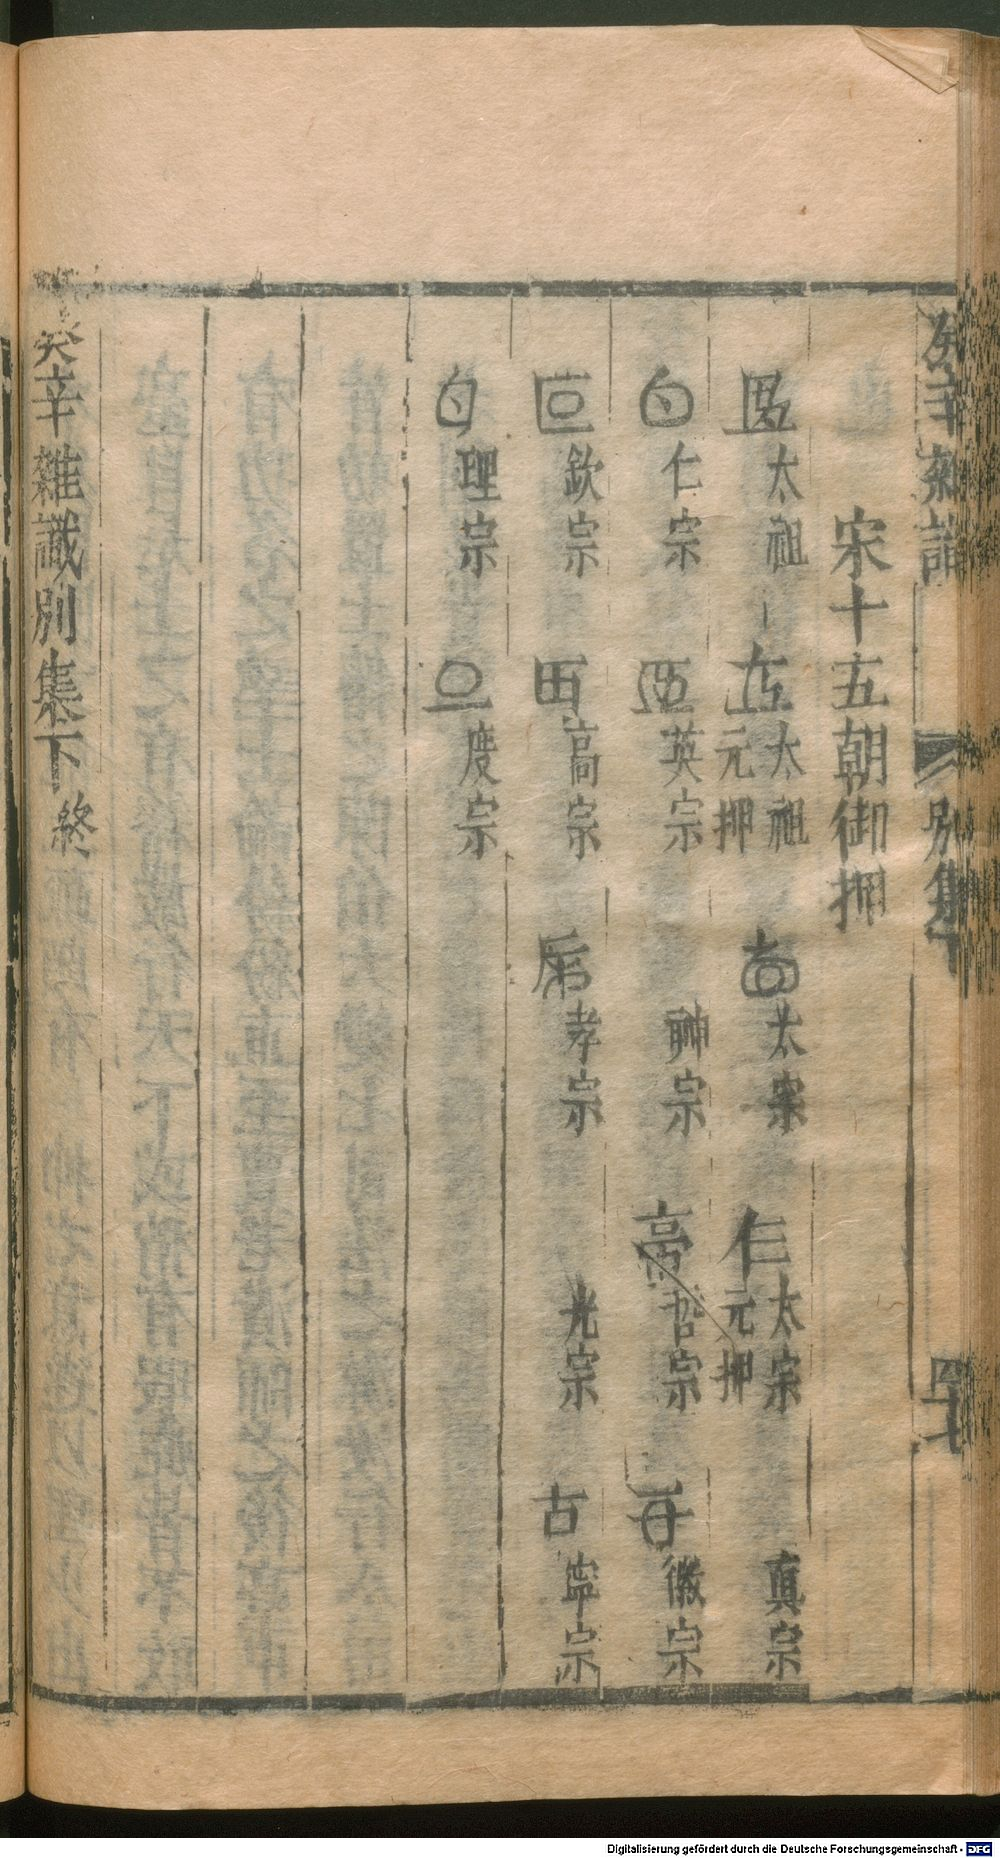 癸辛雜識
別集下
四十七
宋十五朝御押
太祖 太祖元押 太宗 太宗元押 真宗
仁宗 英宗 神宗 哲宗 徽宗
欽宗 高宗 孝宗 光宗 寧宗
理宗 度宗
癸辛雜識別集下 終
Digitalisierung gefördert durch die Deutsche Forschungsgemeinschaft - DFG